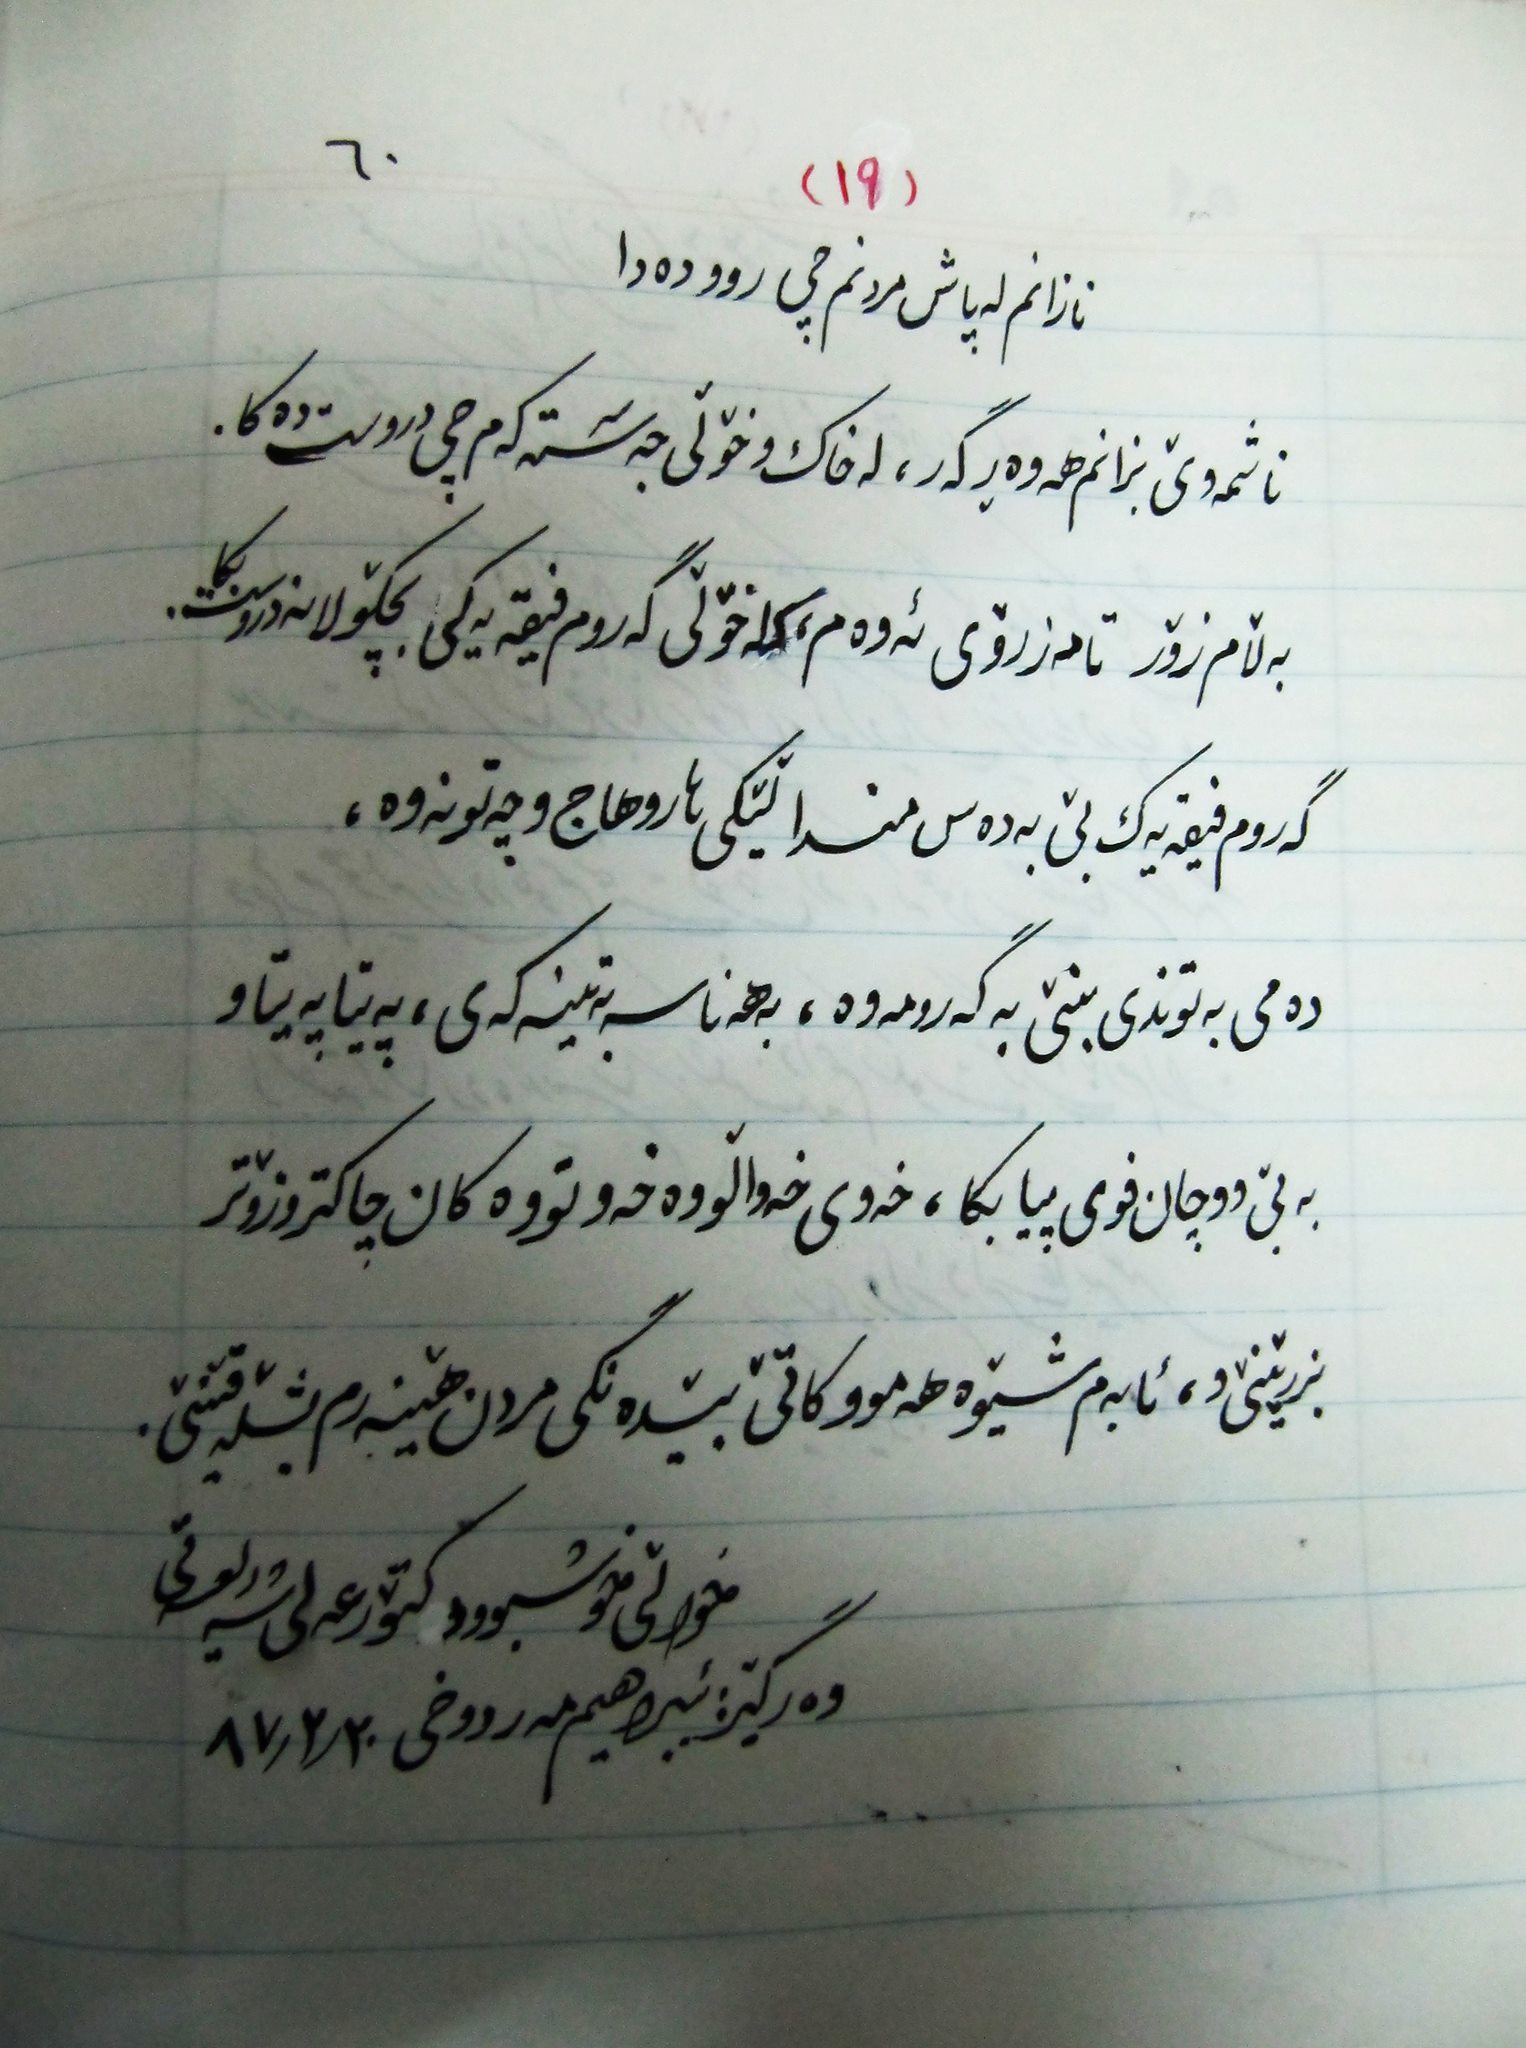 ٦٠
(١٩)
نازانم لە پاش مردنم چی روودەدا
ناشمەوێ بزانم هەوەیرگەر، لە خاک و خۆڵی جەستەکەم چی دروست دەکا.
بەڵام زۆر تامەزرۆی ئەوەم، کە لە خۆڵی گەروم فیقەیەکی بچکۆلانە دروست بکا.
گەروم فیقەیەک بێ بە دەس منداڵێکی هاروهاج و چەتونەوە،
دەمی بە توندی بنێ بە گەرومەوە، بە هەناسە بەتینەکەی، پەیتا پەیتا و
بە بێ دووچان فوی پیا بکا، خەوی خەواڵووە خەوتووەکان چاکتر و زۆتر
بزرێنێ و، ئا بەم شێوە هەموو کاتێ بێدەنگی مردن هێنەرم بشڵەقێنێ.
خوالێ خۆشبوو دکتۆر عەلی شەریعەتی
وەرگێڕ: ئیبراهیم مەردووخی ٨٧٫٢٫٢٠